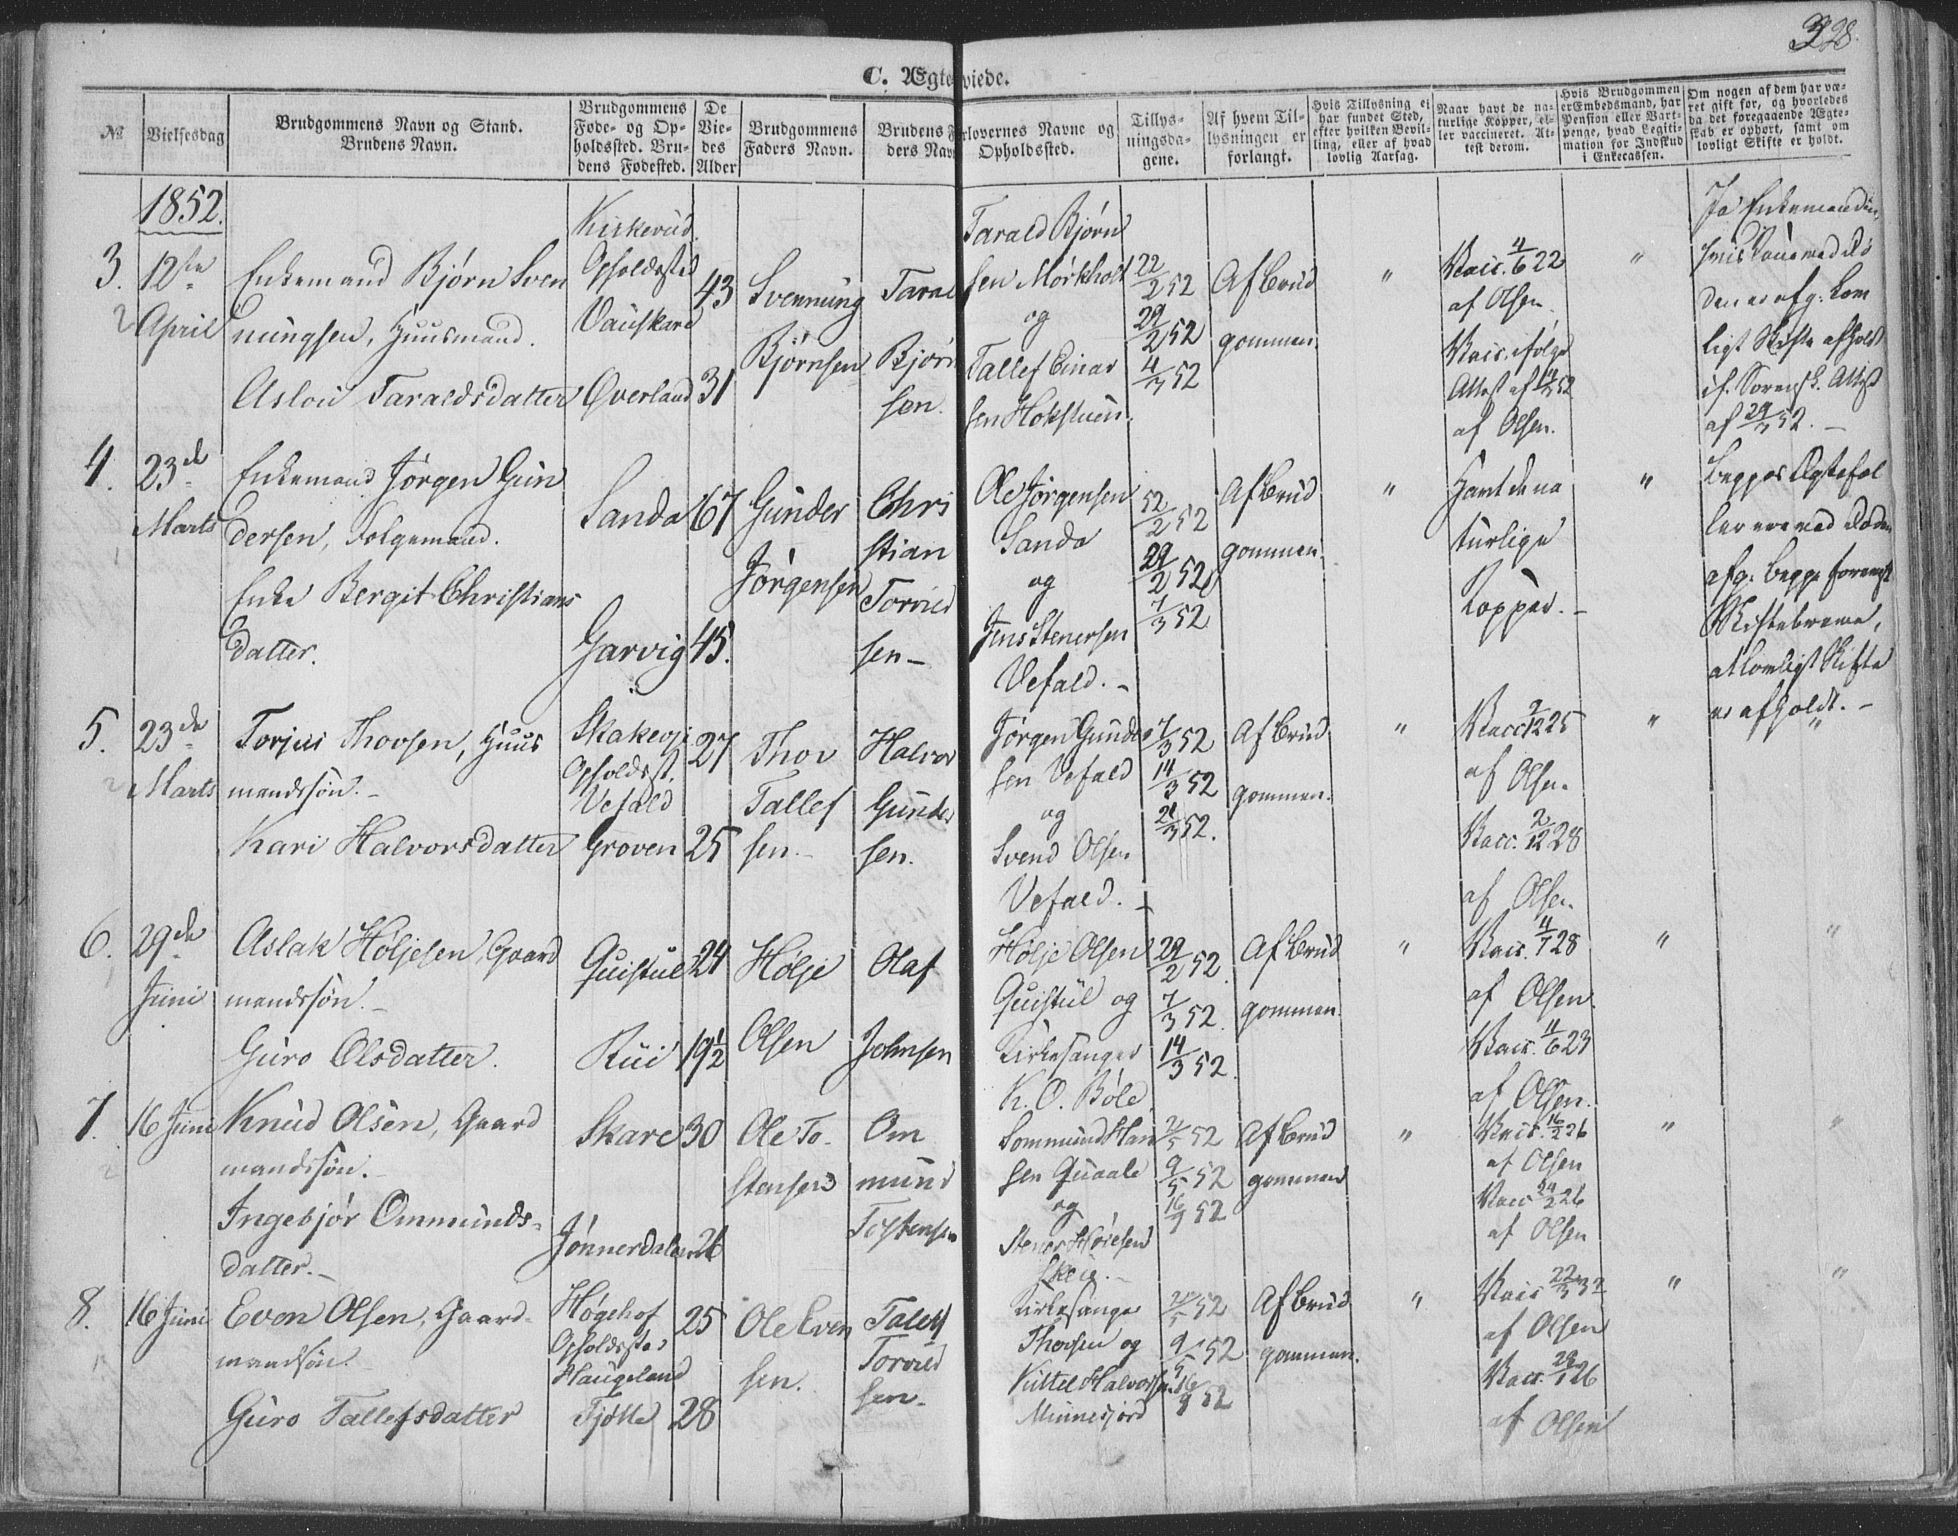 328.
C. Ægteviede.
№
Vielsesdag
Brudgommens Navn og Stand.
Brudens Navn.
Brudgommens
Føde- og Op-
holdssted. Bru-
dens Fødested.
De
Vie-
des
Alder
Brudgommens
Faders Navn.
Brudens F
ders Navn
orlovernes Navne og
Opholdssted.
Tillys-
ningsda-
gene.
Af hvem Til-
lysningen er
forlangt.
Hvis Tillysning ei
har fundet Sted,
efter hvilken Bevil-
ling, eller af hvad
lovlig Aarsag.
Naar havt de na-
turlige Kopper, el-
ler vaccineret. At-
test derom.
Hvis Brudgommen
er Embedsmand, har
Pension eller Vart-
penge, hvad Legiti-
mation for Indskud
i Enkecassen.
Om nogen af dem har væ-
ret gift før, og hvorledes
da det foregaaende Ægte-
skab er ophørt, samt om
lovligt Skifte er holdt.
1852.
3. 12te
April
Enkemand Bjørn Sven
nungsen, Huusmand.
Aslou Taraldsdatter
Kirkerud.
Opholdssted
Vauskard
Øverland
43
31
Svennung
Bjørnsen
Taral
Bjørn
sen.
Tarald Bjørn
sen Mørkholt
og
Tallef Einar
sen Hokstuen.
22/2 52
29/2 52
4/3 52
Af Brud
gommen.
"
Vacc. 4/6 22
af Olsen
Vacc. ifølge
Attest af 52
af Olsen.
"
Ja Enkemand
hvis Kone ved Dø
den er afg. Lov
ligt Skifte afholdt
if. Sorensk. Attest
af 29/3 52. –
4. 23de
Marts
Enkemand Jørgen Gun
dersen, Folgemand.
Enke Bergit Christians
datter.
Sanda
Garvig
67
45.
Gunder
Jørgensen
Chri
stian
Torvild
sen –
Ole Jørgensen
Sanda
og
Jens Stenersen
Vefald. –
52/2 52
29/2 52
7/3 52
Af Brud
gommen.
"
Havt de na
turlige
Kopper. –
"
Begges Ægtefæl
ler ere ved Døden
afg. begge forevist
Skiftebreve,
at lovligt Skifte
er afholdt. –
5. 23de
Marts
Torjus Thovsen, Huus
mandssøn. –
Kari Halvorsdatter
Opholdsst.
Vefald
Groven
27
25
Thov
Tallef
sen. –
Halvor
Gunder
sen.
Jørgen Gunder
sen Vefald
og
Svend Olsen
Vefald. –
7/3 52
14/3 52
21/3 52.
Af Brud
gommen.
"
Vacc. 2/12 25
af Olsen.
Vacc. 2/12 28
af Olsen.
"
"
6. 29de
Juni
Aslak Høljesen, Gaard
mandssøn. –
Guro Olsdatter.
Quistul
Rui
24
19½
Hølje
Olsen
Olaf
Johnsen
Hølje Olsen
Quistul og
Kirkesanger
K. O. Bøle
29/2 52
7/3 52.
14/3 52.
Af Brud
gommen.
"
Vacc. 4/1 28
af Olsen.
Vacc. 4/6 23
af Olsen.
"
"
7. 16 Juni
Knud Olsen, Gaard
mandssøn. –
Ingebjør Ommunds-
datter. –
Skare
Jønnerdalen
30
26
Ole To-
stensen
Om
mund
Tostensen
Sommund Han
sen Quaale
og
Stener
Skeie. –
2/5 52
9/5 52
16/5 52
Af Brud
gommen
"
Vacc. 16/2 26
af Olsen
Vacc 24/2 26
af Olsen
"
"
8. 16 Juni
Even Olsen, Gaard-
mandsøn. –
Guro Tallefsdatter
Høgehof
Opholdssted
Haugeland
Tjotte
25
28
Ole Even
sen.
Talef
Torvild
sen –
Kirkesanger
Thovsen og
Kittel Halvorsen
Minnesjord
2/5 52
9/5 52
16/5 52
Af Brud
gommen.
"
Vacc 22/3 32
af Olsen
Vacc. 29/1 26
af Olsen
"
"